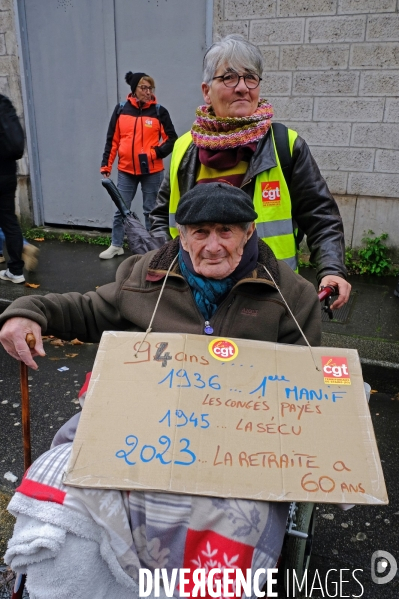 cgt
cgt
cgt
94 ans....
cgt
1936... 1ère MANIF
LES CONGÉS PAYÉS
1945... LA SÉCU
2023... LA RETRAITE a
60 ANS
DIVERGENCE IMAGES